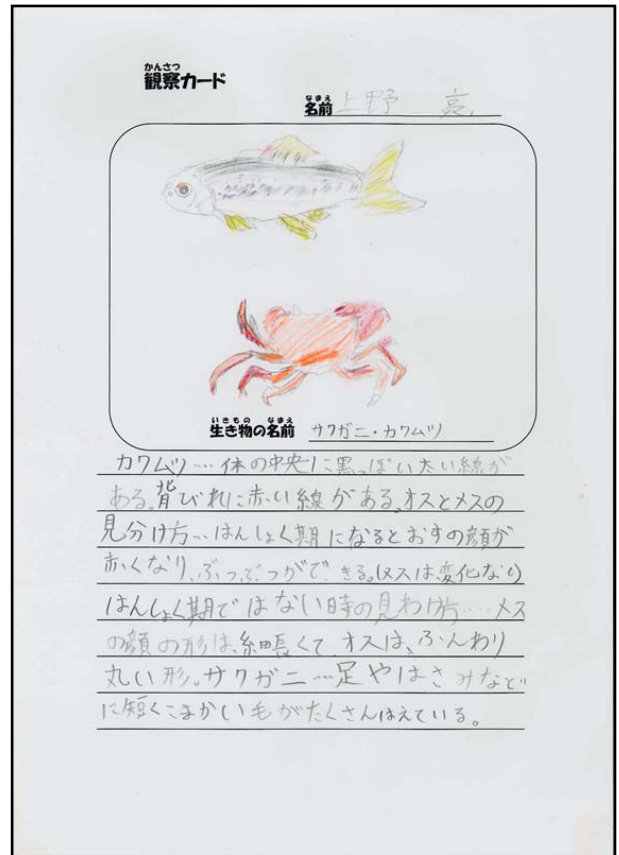 かんさつ
観察カード
なまえ
名前 上野 亮
いきもの なまえ
生き物の名前 サワガニ・カワムツ
カワムツ…体の中央に黒っぽい太い線が
ある。背びれに赤い線がある。オスとメスの
見分け方…はんしょく期になるとおすの顔が
赤くなり、ぶつぶつができる。(メスは変化なし)
はんしょく期ではない時の見わけ方……メス
の顔の形は、細長くて、オスは、ふんわり
丸い形。サワガニ…足やはさみなど
に短くこまかい毛がたくさんはえている。